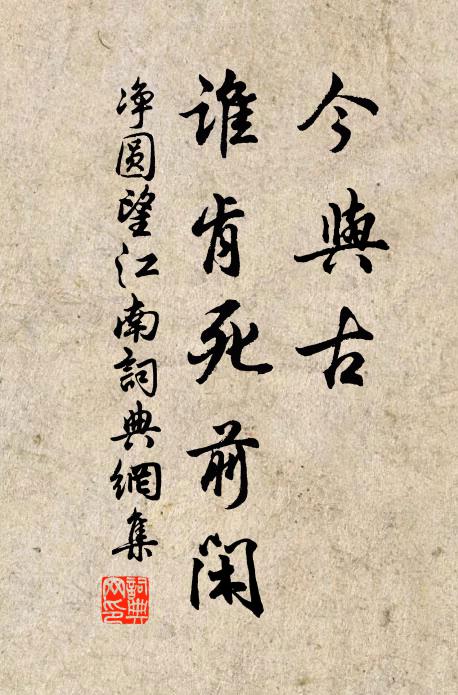 今與古
誰肯死前閑
净圓望江南詞典網集
詞典